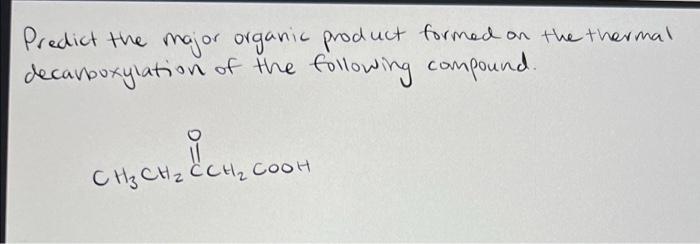 Predict the major organic product formed on the thermal
decarboxylation of the following compound.
O
||
CH₃CH₂CCH₂COOH